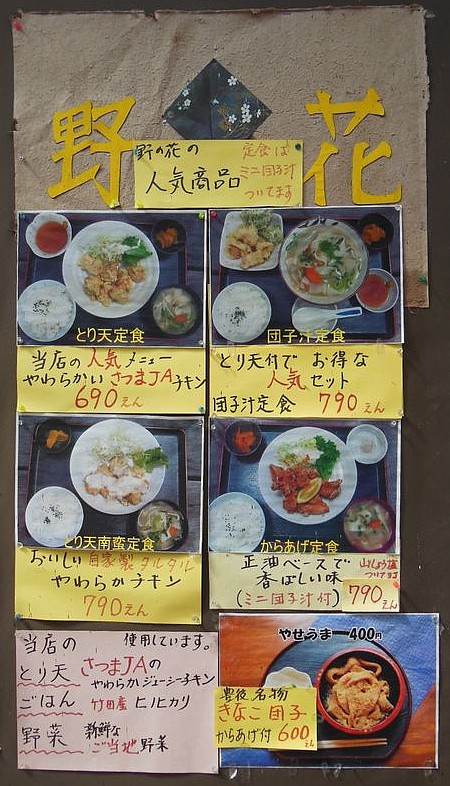 野 花
野の花の
人気商品
定食は
ミニ団子汁
ついてます
とり天定食
当店の人気メニュー
やわらかいさつまJAチキン
690えん
団子汁定食
とり天付で お得な
人気セット
団子汁定食 790えん
とり天南蛮定食
おいしい自家製タルタル
やわらかチキン
790えん
からあげ定食
正油ベースで
香ばしい味
(ミニ団子汁付)
ついてます
790えん
当店の 使用しています。
とり天 さつまJAの
やわらかジューシーチキン
ごはん 竹田産 ヒノヒカリ
野菜 新鮮な
ご当地野菜
やせうま 400円
豊後名物
きなこ団子
からあげ付 600えん